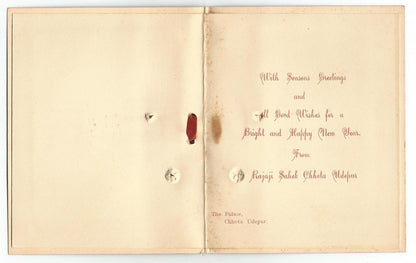 With Seasons Greetings
and
All Best Wishes for a
Bright and Happy New Year.
From
Rajaji Saheb Chhota Udepur
The Palace,
Chhota Udepur.